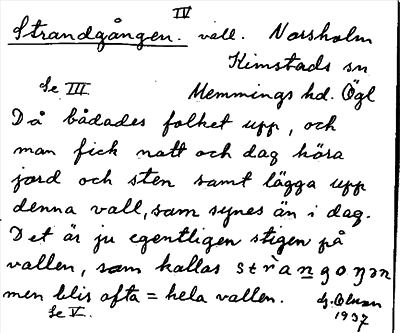 IV
Strandgången. vall. Norsholm
Kimstads sn
Se III Memmings hd. Ögl
Då bådades folket upp, och
man fick natt och dag köra
jord och sten samt lägga upp
denna vall, som synes än i dag.
Det är ju egentligen stigen på
vallen, som kallas
men blir ofta = hela vallen. G. Olson
Se V. 1937